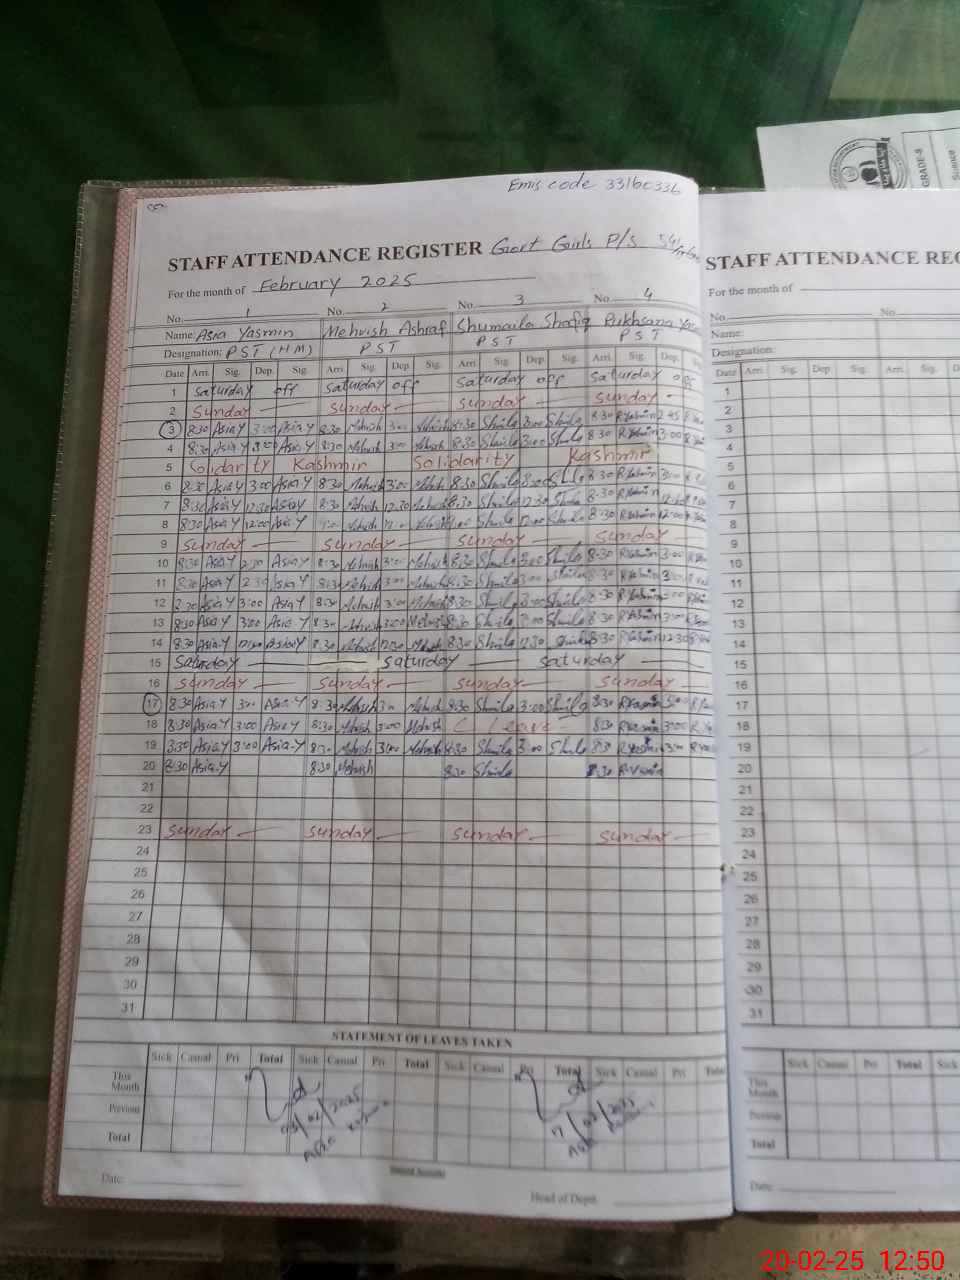 Emis code 33160336
GRADE-8
Science
STAFF ATTENDANCE REGISTER Govt Girls P/S 54
STAFF ATTENDANCE REG
For the month of February 2025
For the month of
No. 1 No. 2 No. 3 No. 4
No. No.
Name: Asia Yasmin Mehvish Ashraf Shumaila Shafiq Rukhsana
Name:
Designation: PST (HM) PST PST PST
Designation:
Date Arri. Sig. Dep. Sig. Arri. Sig. Dep. Sig. Arri. Sig. Dep. Sig. Arri. Sig. Dep.
Date Arri. Sig. Dep. Sig. Arri. Sig.
1 Saturday off Saturday off Saturday off Saturday off
2 Sunday Sunday Sunday Sunday
3 8:30 Asia.Y 3:00 Asia.Y 8:30 Mehvish 3:00 Mehvish 8:30 Shmila 3:00 Shmila 8:30 R.Yasmin 2:45
4 8:30 Asia.Y 3:00 Asia.Y 8:30 Mehvish 3:00 Mehvish 8:30 Shmila 3:00 Shmila 8:30 R.Yasmin 3:00
5 Solidarity Kashmir Solidarity Kashmir
6 8:30 Asia.Y 3:00 Asia.Y 8:30 Mehvish 3:00 Mehvish 8:30 Shmila 3:00 8:30 R.Yasmin 3:00
7 8:30 Asia.Y 12:30 Asia.Y 8:30 Mehvish 12:30 Mehvish 8:30 Shmila 12:30 Shmila 8:30 R.Yasmin
8 8:30 Asia.Y 12:00 Asia.Y Mehvish Mehvish Shmila Shmila 8:30 R.Yasmin 12:00
9 Sunday Sunday Sunday Sunday
10 8:30 Asia.Y 2:30 Asia.Y 8:30 Mehvish 3:00 Mehvish 8:30 Shmila 3:00 Shmila 8:30 R.Yasmin 3:00
11 8:30 Asia.Y 2:30 Asia.Y 8:30 Mehvish 3:00 Mehvish 8:30 Shmila 3:00 Shmila 8:30 R.Yasmin 3:00
12 Asia.Y 3:00 Asia.Y 8:30 Mehvish 3:00 Mehvish 8:30 Shmila 3:00 Shmila 8:30 R.Yasmin
13 8:30 Asia.Y 3:00 Asia.Y 8:30 Mehvish 3:00 Mehvish 8:30 Shmila 3:00 Shmila 8:30 R.Yasmin
14 8:30 Asia.Y 12:30 Asia.Y 8:30 Mehvish 12:30 Mehvish 8:30 Shmila 12:30 Shmila 8:30 R.Yasmin 12:30
15 Saturday Saturday Saturday
16 Sunday Sunday Sunday Sunday
17 8:30 Asia.Y 3:00 Asia.Y 8:30 Mehvish Mehvish 8:30 Shmila 3:00 Shmila 8:30 R.Yasmin 3:00
18 8:30 Asia.Y 3:00 Asia.Y 8:30 Mehvish 3:00 Mehvish C Leave 8:30 R.Yasmin 3:00
19 8:30 Asia.Y 3:00 Asia.Y 8:30 Mehvish 3:00 Mehvish 8:30 Shmila 3:00 Shmila 8:30 R.Yasmin 3:00
20 8:30 Asia.Y 8:30 Mehvish 8:30 Shmila 8:30 R.Yasmin
21
22
23 Sunday Sunday Sunday Sunday
24
25
26
27
28
29
30
31
1
2
3
4
5
6
7
8
9
10
11
12
13
14
15
16
17
18
19
20
21
22
23
24
25
26
27
28
29
30
31
STATEMENT OF LEAVES TAKEN
Sick Casual Pri Total Sick Casual Pri Total Sick Casual Pri Total Sick Casual Pri Total
Sick Casual Pri Total Sick
This Month
Previous
Total
03/02/2025
17/02/2025
This Month
Previous
Total
Date:
Head of Deptt
Date:
20-02-25 12:50